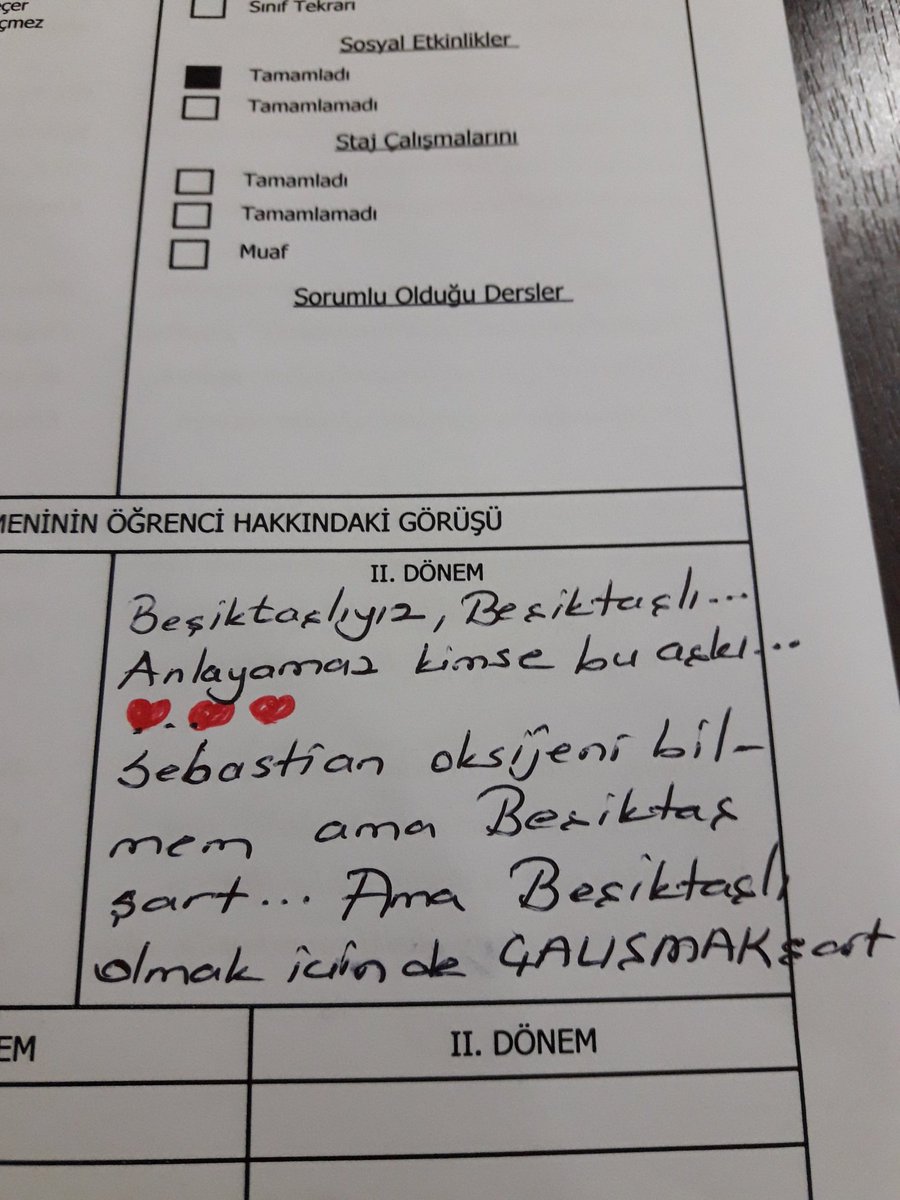 eçer
çmez
Sınıf Tekrarı
Sosyal Etkinlikler
Tamamladı
Tamamlamadı
Staj Çalışmalarını
Tamamladı
Tamamlamadı
Muaf
Sorumlu Olduğu Dersler
MENİNİN ÖĞRENCİ HAKKINDAKİ GÖRÜŞÜ
II. DÖNEM
Beşiktaşlıyız, Beşiktaşlı...
Anlayamaz kimse bu aşkı...
...
Sebastian oksijeni bil-
mem ama Beşiktaş
şart... Ama Beşiktaşlı
olmak için de ÇALIŞMAK şart
EM
II. DÖNEM